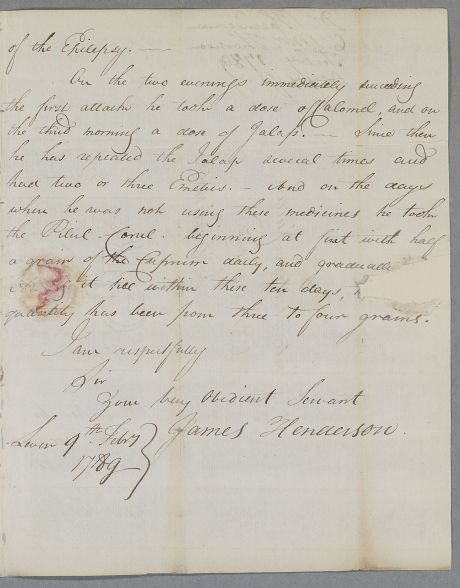 of the Epilepsy. —
On the two evenings immediately succeeding
the first attack he took a dose of Calomel, and on
the third morning a dose of Jalap. — Since then
he has repeated the Jalap several times and
had two or three Emetics. — And on the days
when he was not using these medicines he took
the Pilul. Cœrul. beginning at first with half
a grain of the Cuprum daily, and gradually
it till within these ten days,
quantity has been from three to four grains.
I am respectfully
Sir
Your very Obedient Servant
James Henderson.
Leven 9th Febry
1789